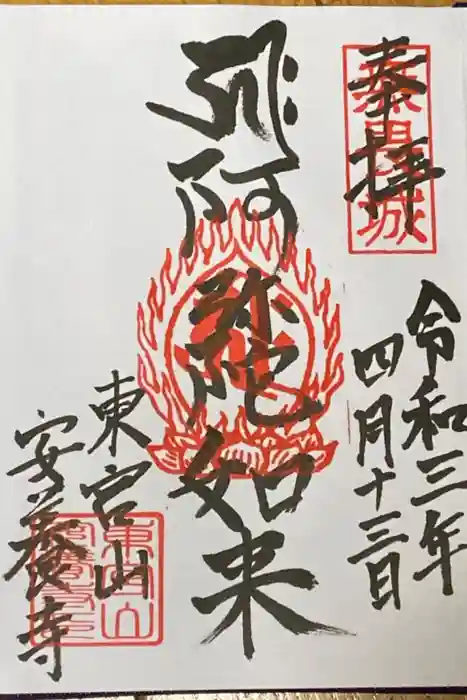 奉拝
令和三年
四月十三日
阿弥陀如来
東宮山
安養寺